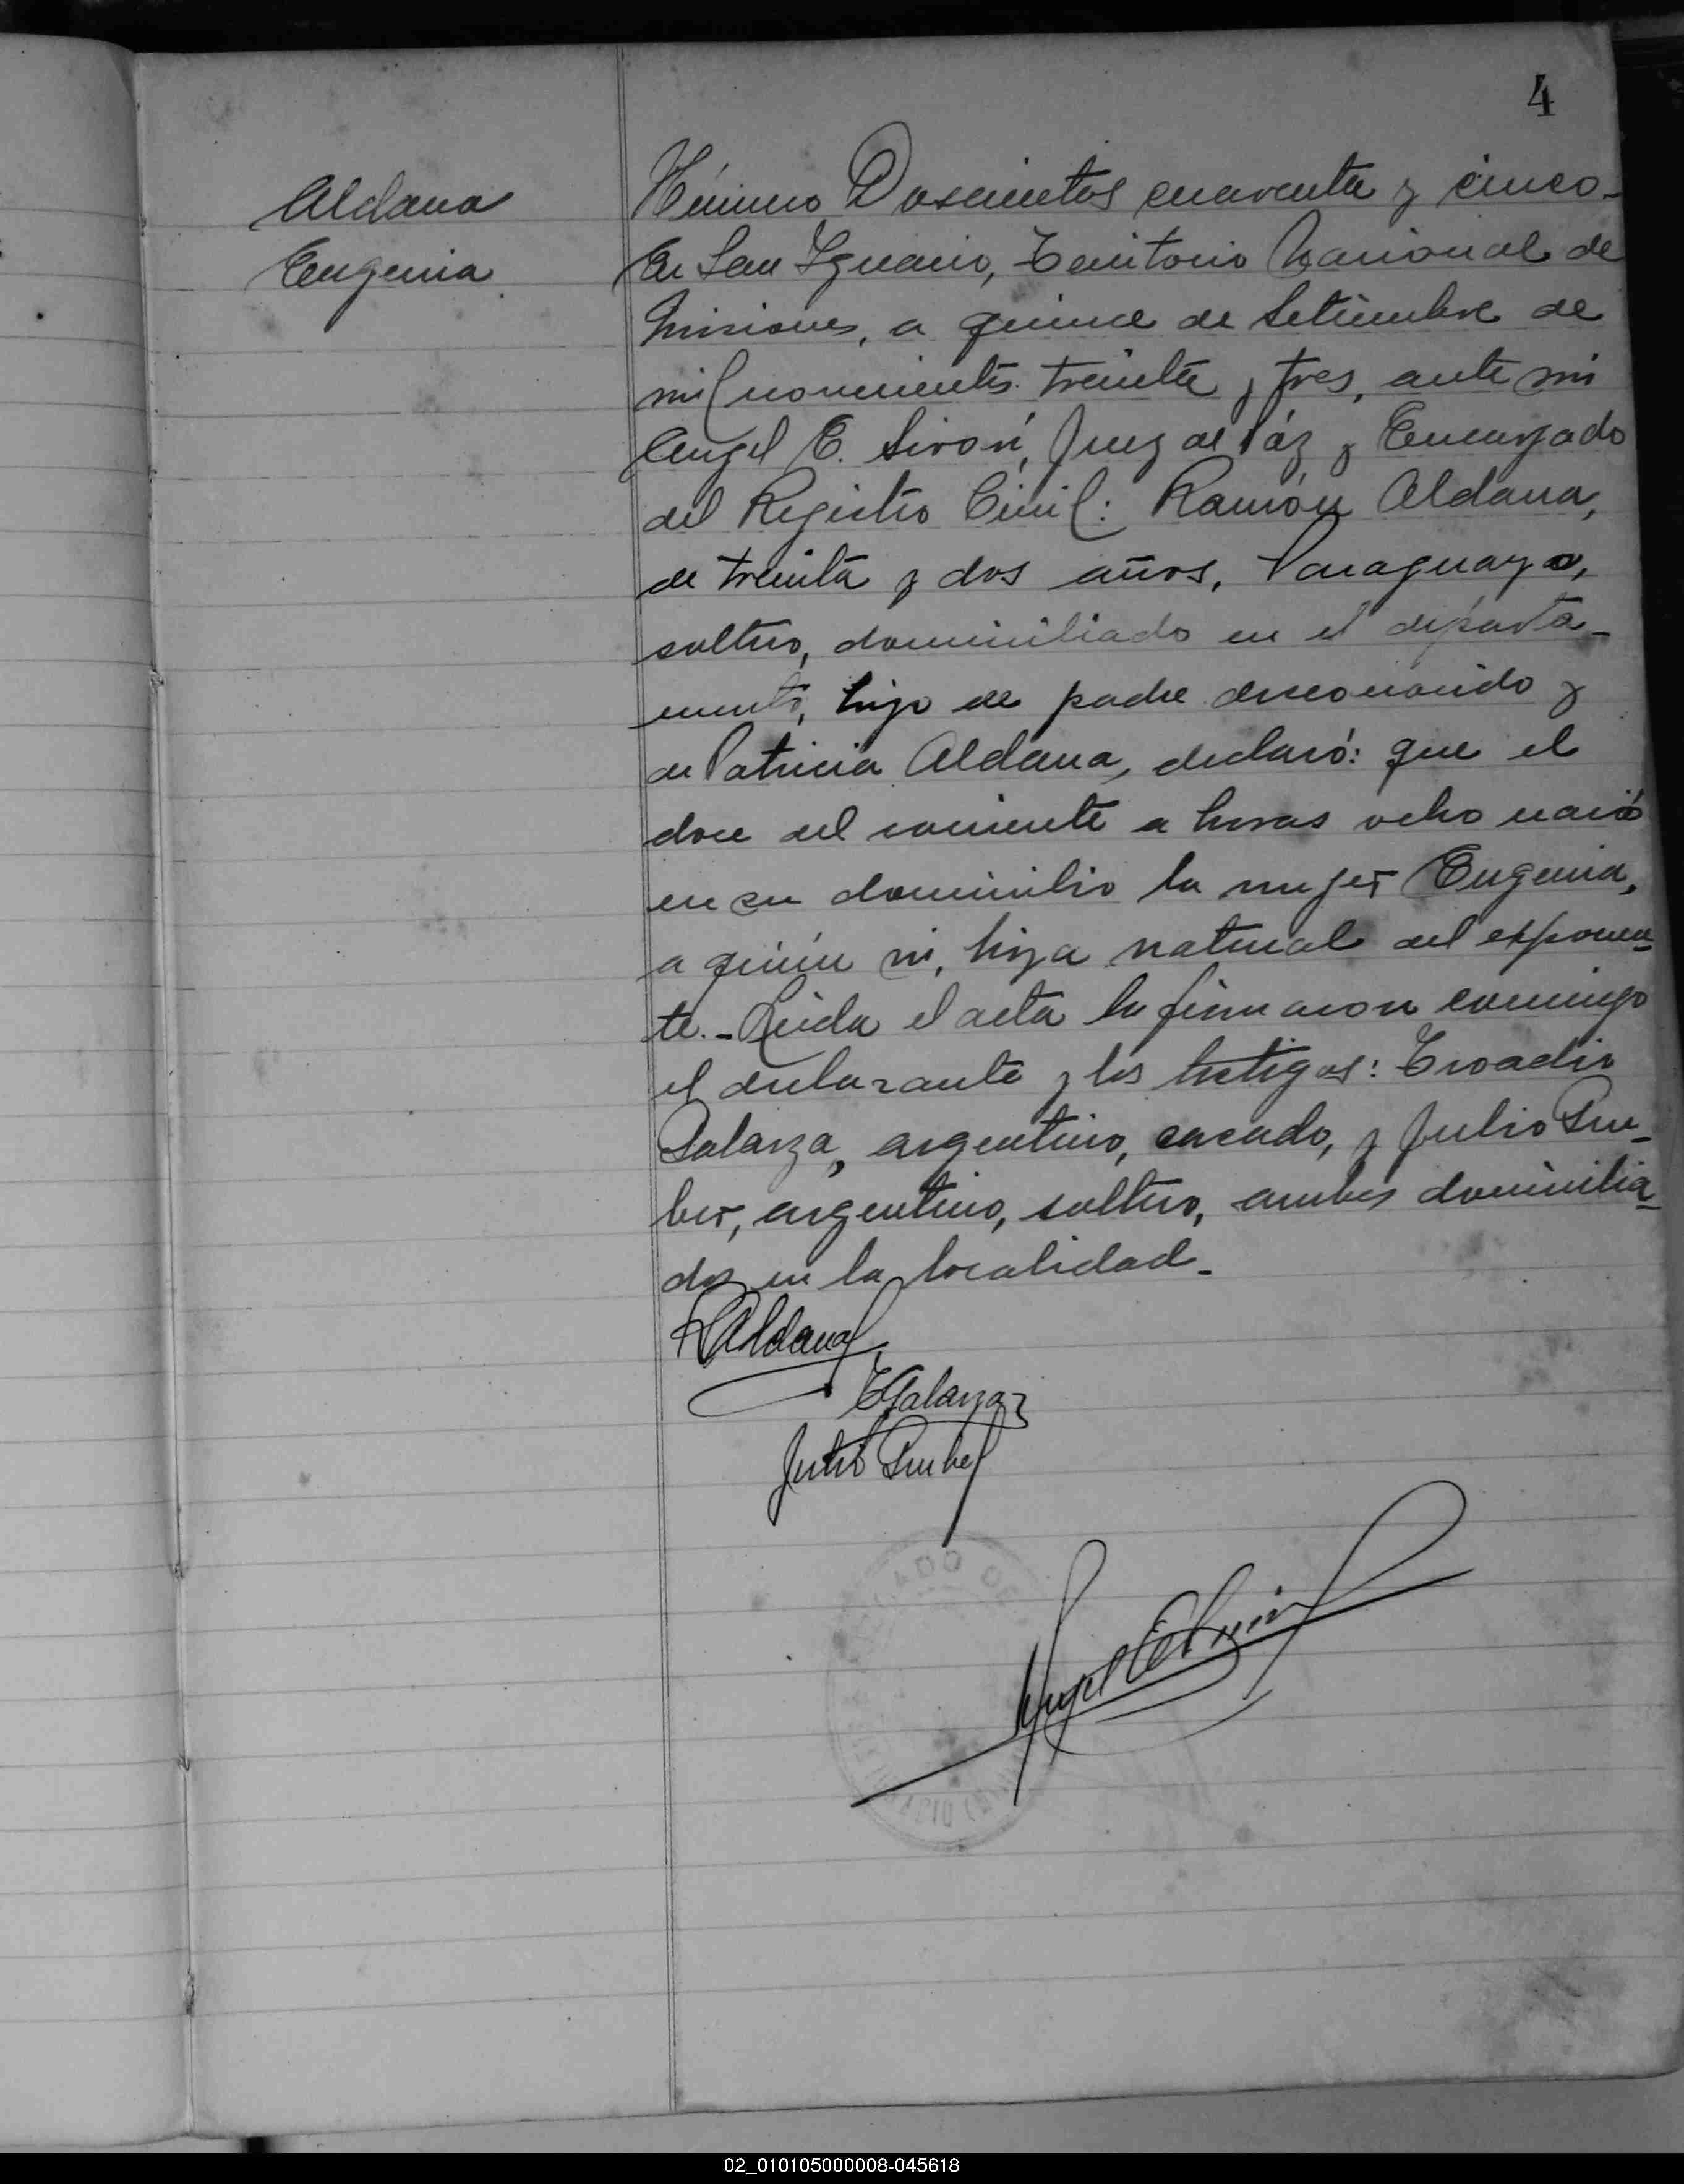 4
Aldana
Eugenia
Número Doscientos cuarenta y cinco-
En San Ignacio, Territorio Nacional de
Misiones, a quince de Setiembre de
mil novecientos treinta y tres, ante mi
Angel E. Sirón, Juez de Páz y Encargado
del Registro Civil: Ramón Aldana,
de treinta y dos años, Paraguayo,
soltero, domiciliado en el departa-
mento, hijo de padre desconocido y
de Patricia Aldana, declaró: que el
doce del corriente a horas ocho nació
en su domicilio la mujer Eugenia,
a quién ví, hija natural del exponen-
te.- Leída el acta la firmaron conmigo
el declarante y los testigos: Troadio
Galarza, argentino, casado, y Julio Gru-
ber, argentino, soltero, ambos domicilia-
dos en la localidad.-
R Aldana
T Galarza
Julio Gruber
Angel E
02_010105000008-045618